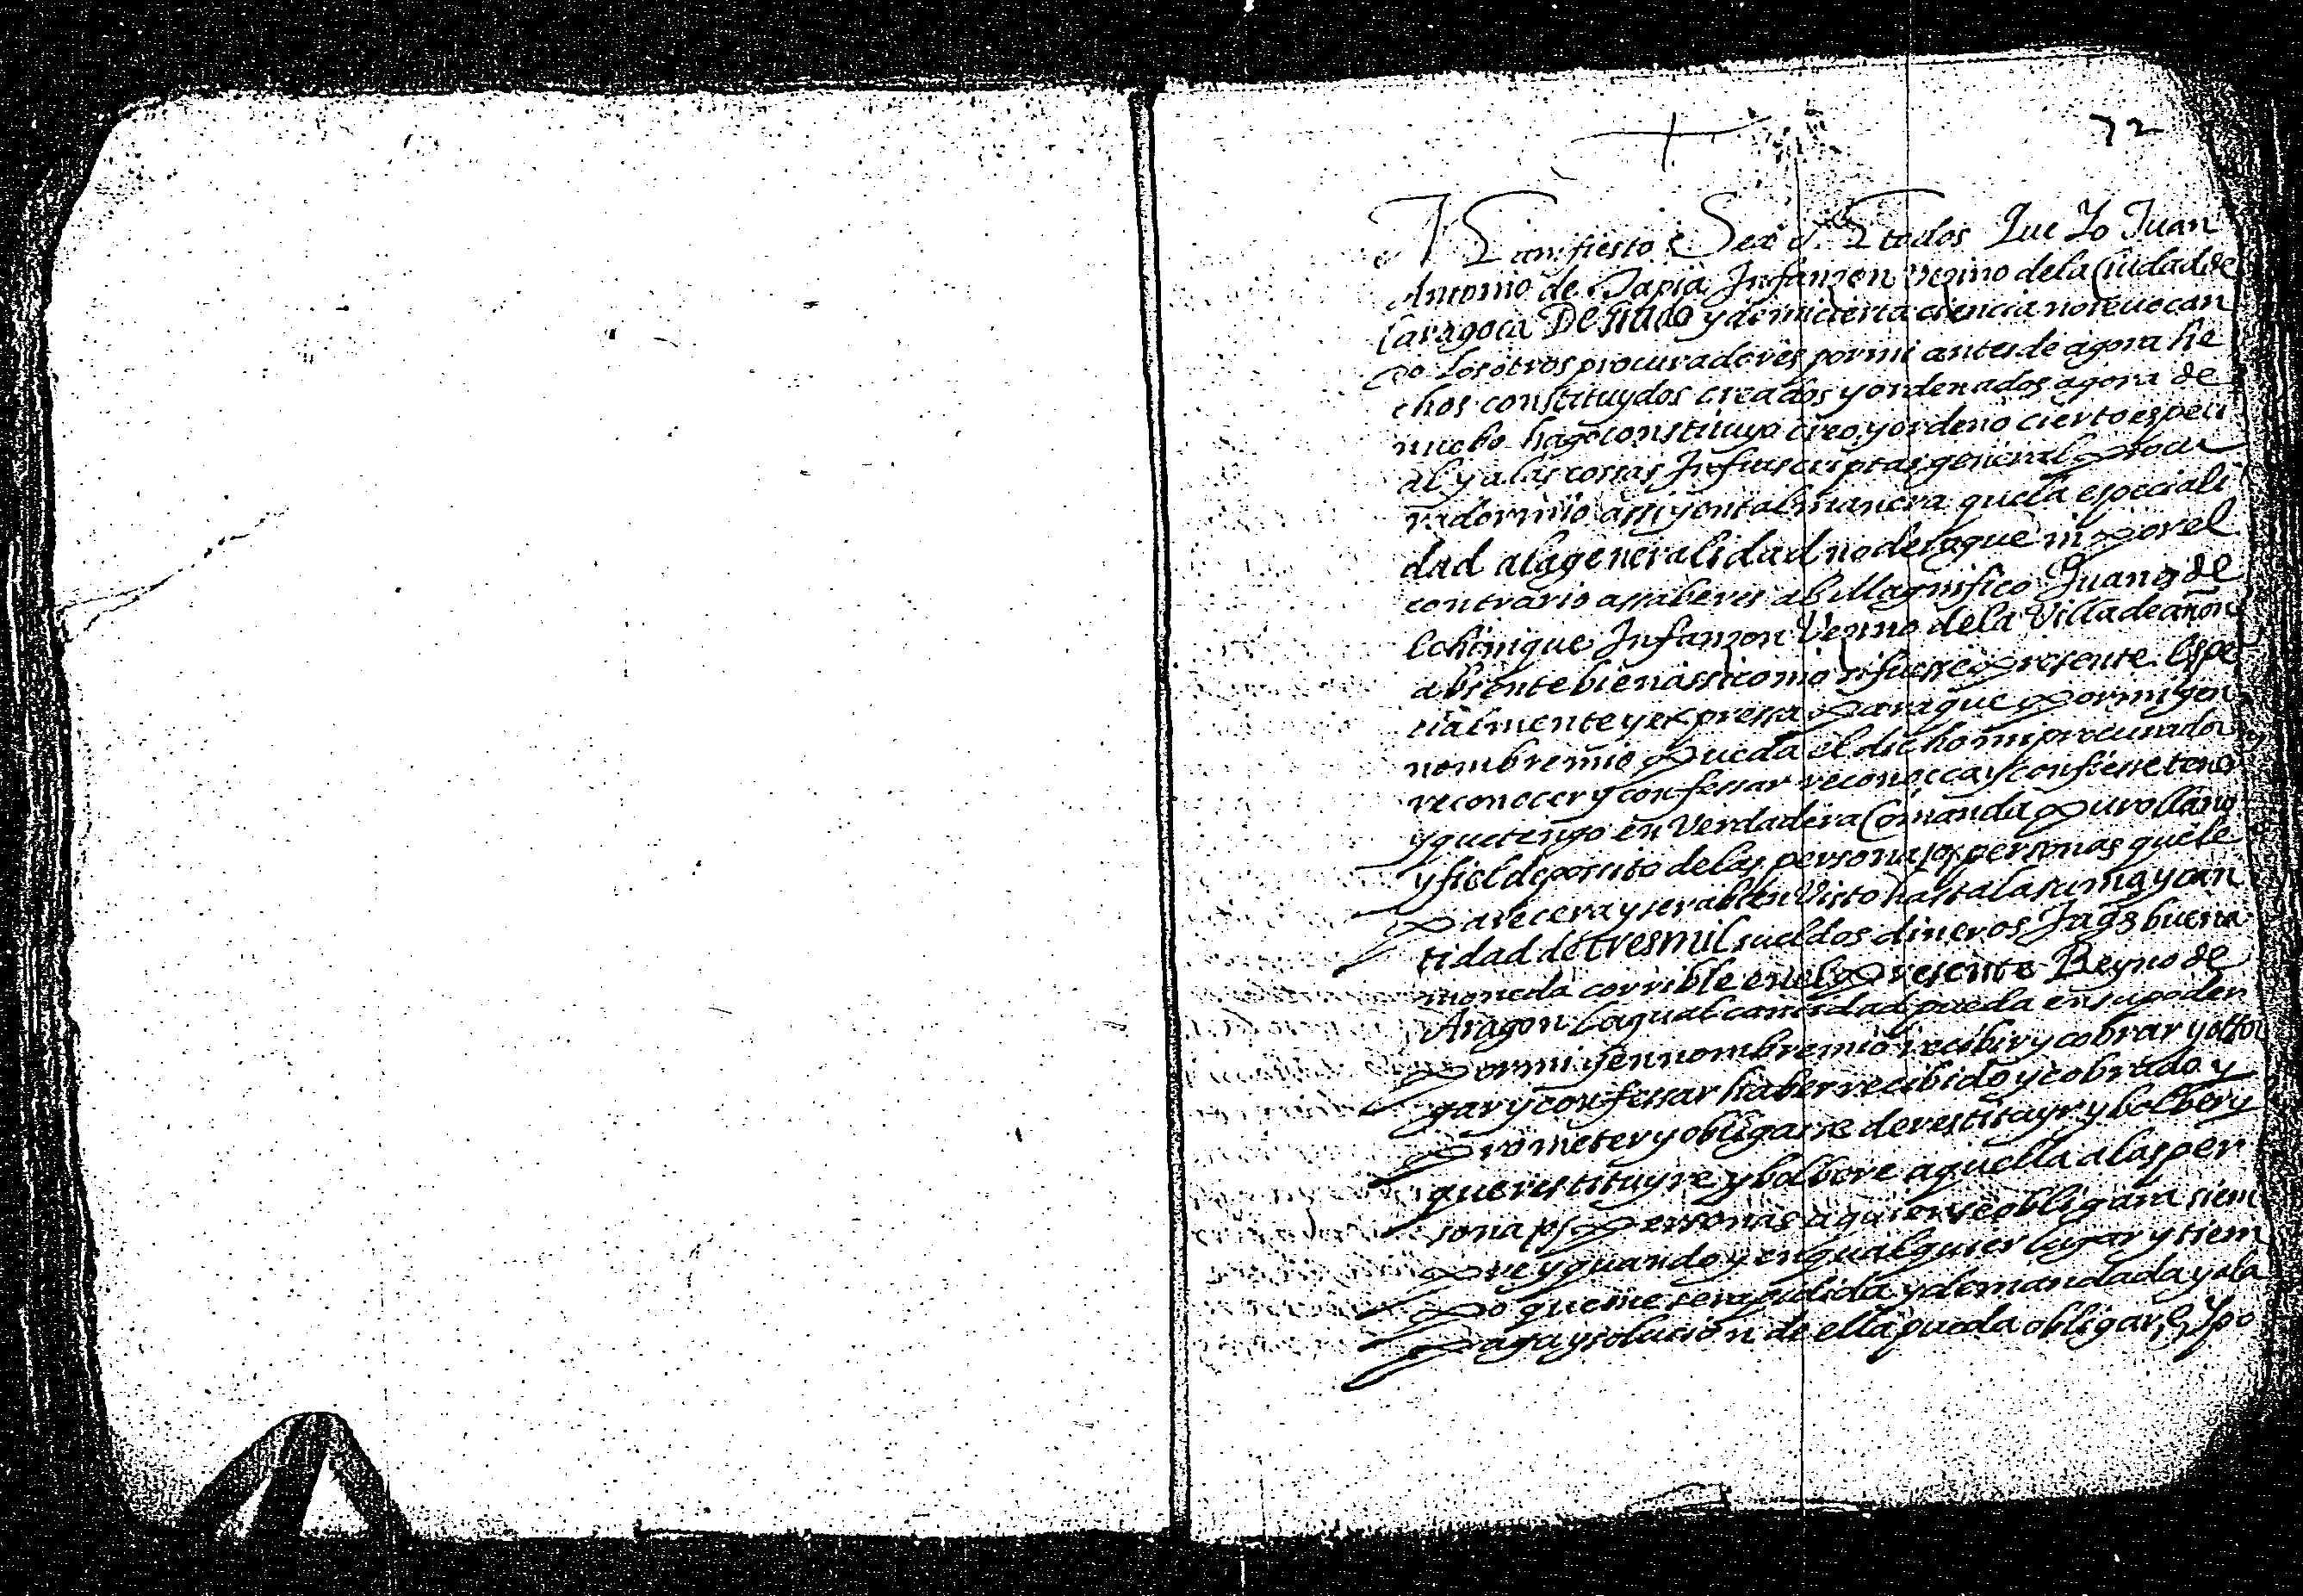 72
Manifiesto Sea a todos Que Yo Juan
Antonio de Tapia Infanzon Vezino dela Ciudad de
Caragoca De grado y de mi cierta ciencia no reuocan
do los otros procuradores por mi antes de agora he
chos constituydos creados y ordenados agora de
nuebo hago constituyo creo y ordeno cierto especi
al y a las cossas Infrascriptas general procu
rador mio assi y en tal manera que la especiali
dad a la generalidad no derogue ni por el
contrario assaber es al Magnifico Juan de
Infanzon Vezino dela Villa de añon
absente bien assi como si fuesse presente. Espe
cialmente y expressa para que por mi y en
nombre mio pueda el dicho mi procurador
reconocer y confessar reconozca y confiesse tener
y que tengo en Verdadera Comanda puro llano
y fiel deposito de las persona o personas que le
parecera y sera bien Visto hasta la suma y can
tidad de tres mil sueldos dineros Jags buena
moneda corrible en el presente Reyno de
Aragon la qual cantidad pueda en su poder
por mi y en nombre mio recibir y cobrar y ottor
gar y confessar haber recibido y cobrado y
prometer y obligarse de restituyr y bolber y
que restituyre y bolbere aquella a las per
sona o personas a quien se obligara siem
pre y quando y en qualquier lugar y tiem
po que me sera pidida y demandada y a la
paga y solucion de ella pueda obligar, e Ypo